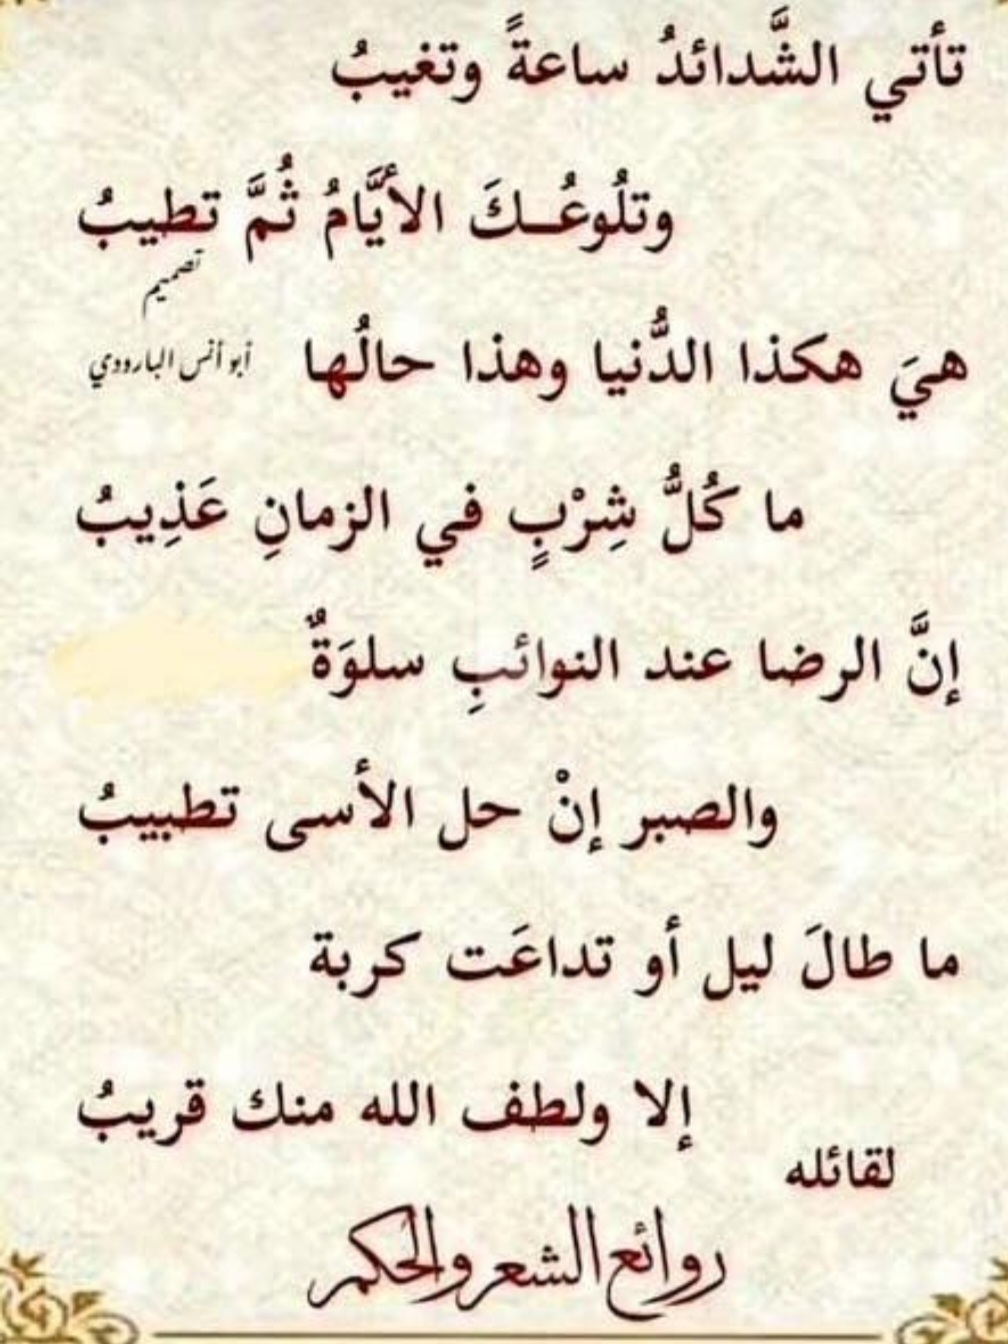 تأتي الشَّدائدُ ساعةً وتغيبُ
وتلُوعُــكَ الأيَّامُ ثُمَّ تطيبُ
تصميم
هيَ هكذا الدُّنيا وهذا حالُها
أبو أنس البارودي
ما كُلُّ شِرْبٍ في الزمانِ عَذِيبُ
إنَّ الرضا عند النوائبِ سلوَةٌ
والصبر إنْ حل الأسى تطبيبُ
ما طالَ ليل أو تداعَت كربة
إلا ولطف الله منك قريبُ
لقائله
روائع الشعر والحكم